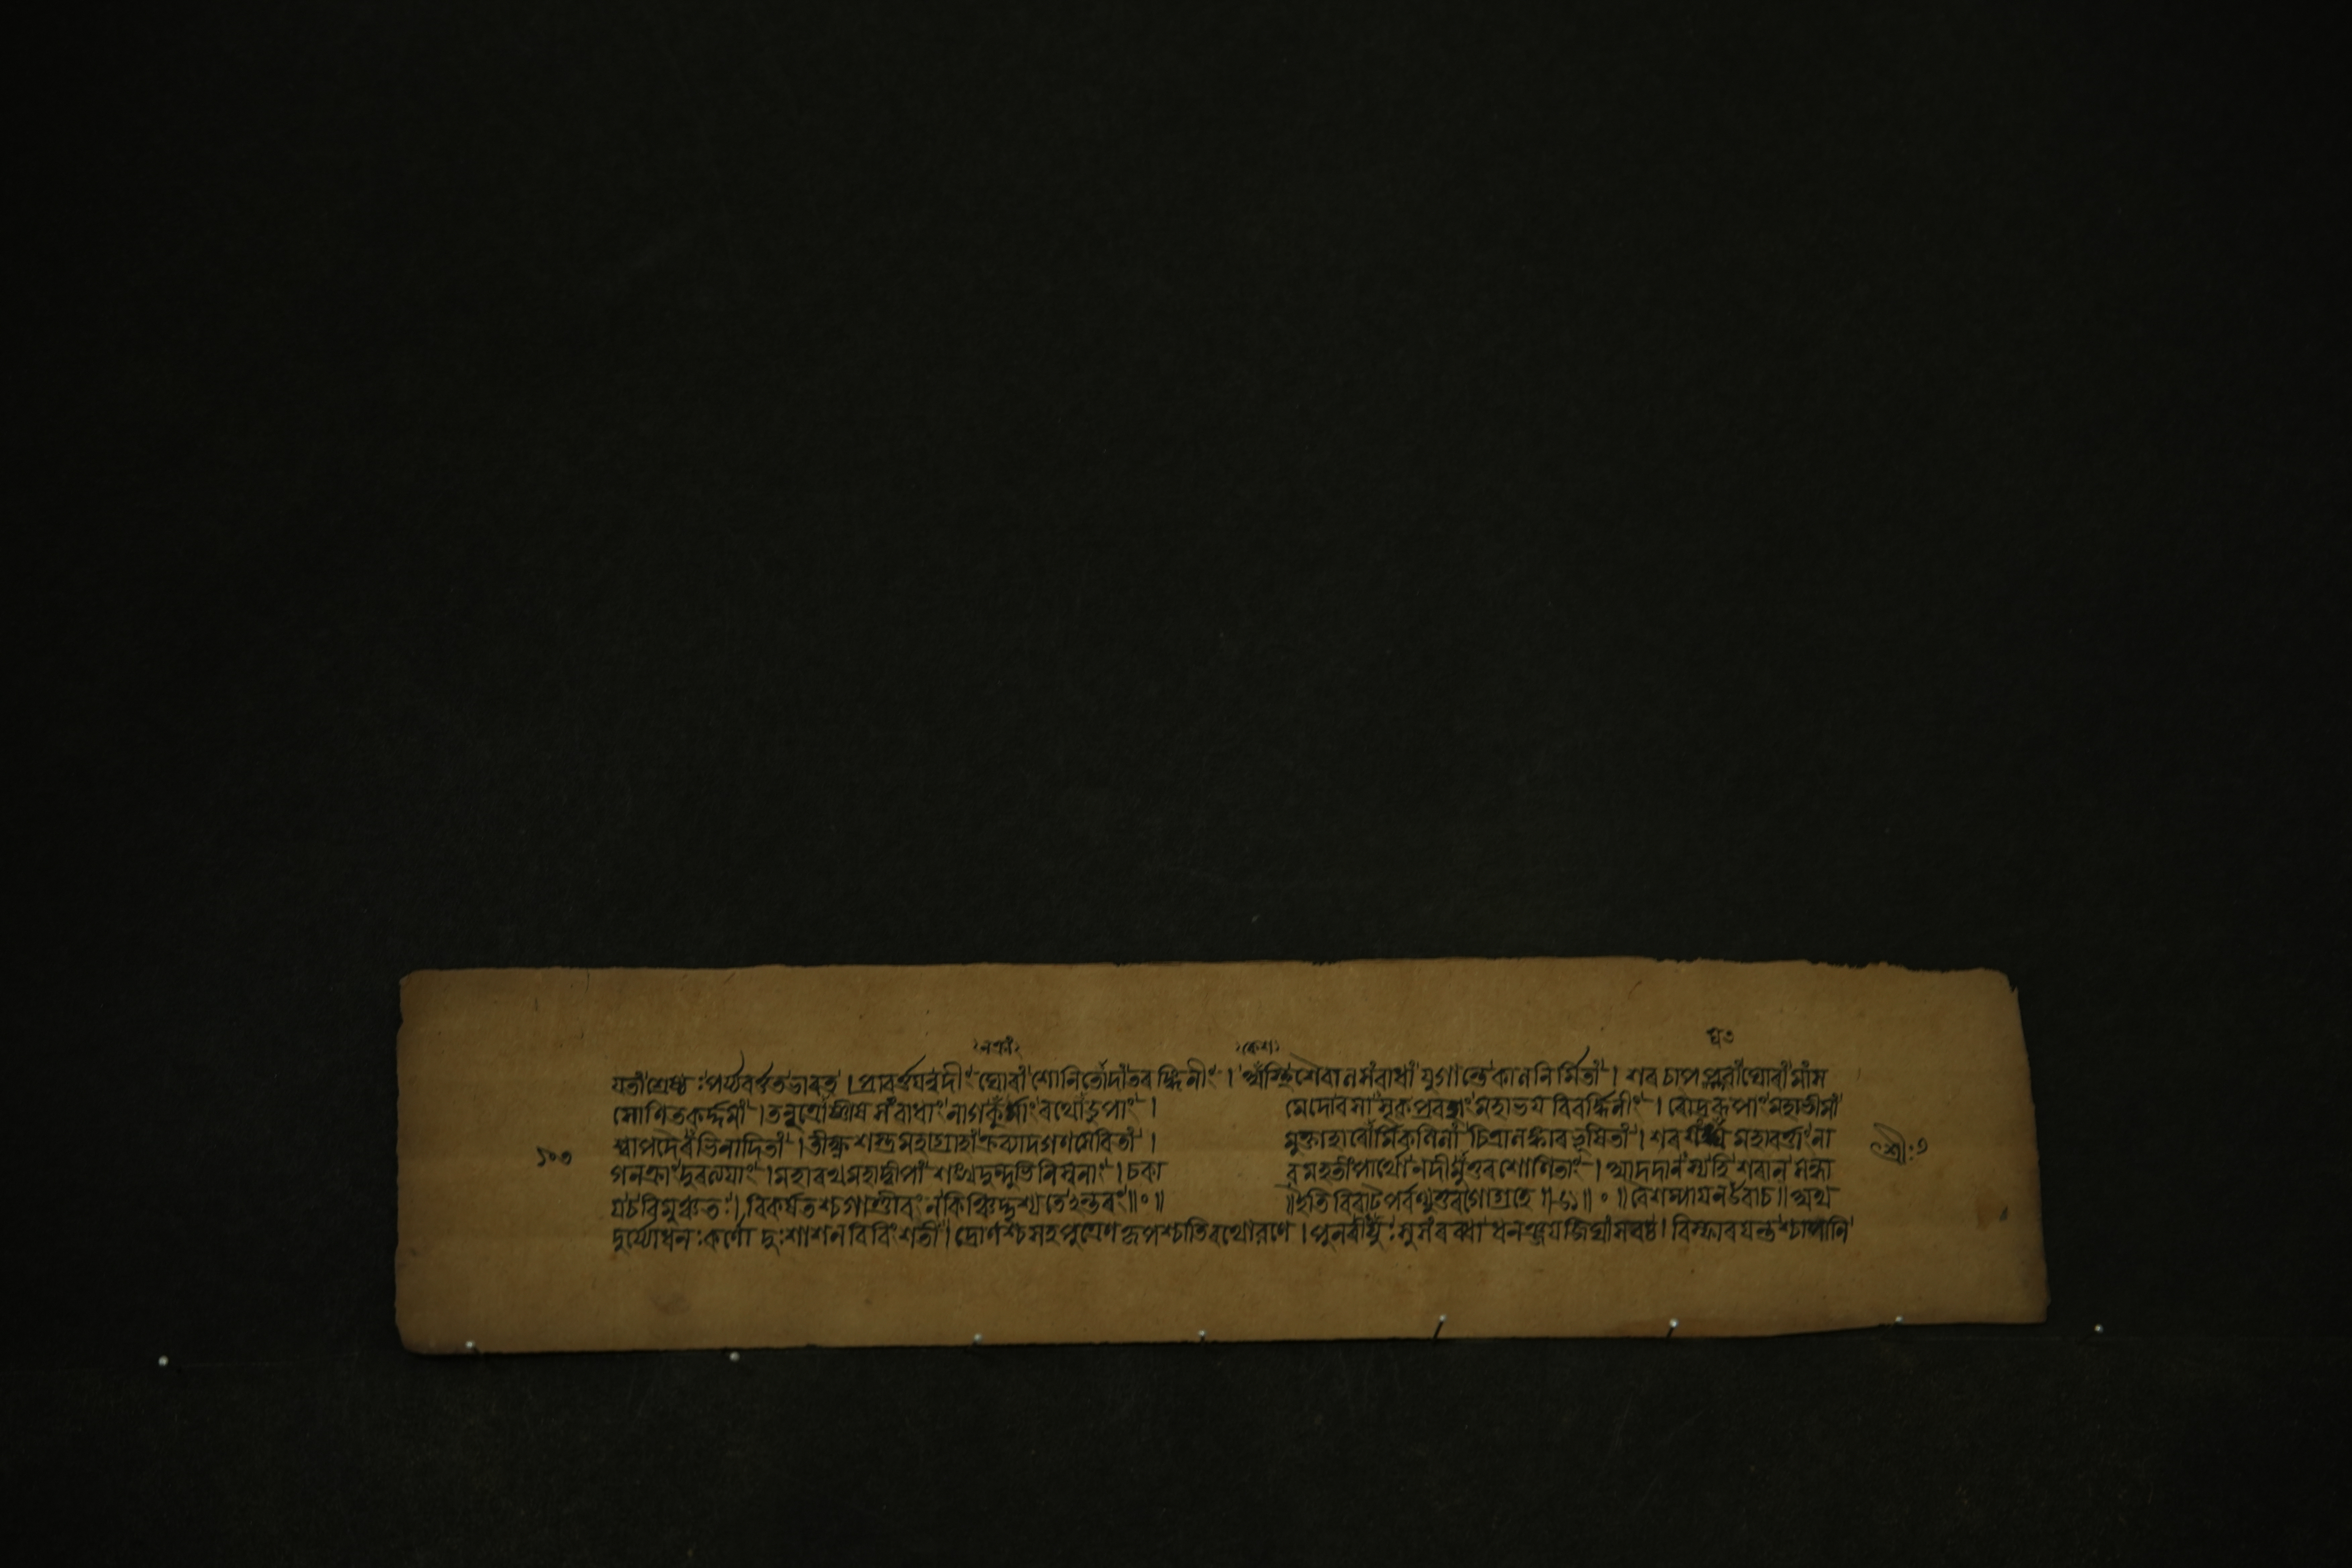 যতাংশ্রেষ্ঠঃপর্য্যবর্ত্ততভাৰত । প্রাবর্ত্তযন্নদীং ঘোৰাং শোনিতোদাংতৰঙ্গিনীং । অস্থিশৈবালসংবাধাং যুগান্তেকালনির্মিতাং । শৰচাপপ্লবাংঘোৰাং মাংস
সোণিতকর্দ্দমাং । তনুত্রোষ্ণীষসংবাধাং নাগকূর্মাং ৰথোডুপাং । মেদোবসাসৃকপ্রবহাং মহাভয বিবর্দ্ধিনীং । ৰৌদ্ৰৰূপাং মহাভীমাং
শ্বাপদৈৰভিনাদিতাং । তীক্ষ্ণশস্ত্রমহাগ্রাহাং ক্রব্যাদগণসেবিতাং । মুক্তাহাৰোর্মিকলিলাং চিত্রালঙ্কাৰভূষিতাং । শৰ মহাবর্ত্তাং না
১০৩
শ্রীঃ
গনক্রাং দুৰত্যযাং । মহাৰথমহাদ্বীপাং শঙ্খদুন্দুভিনিস্বনাং । চকা ৰ মহতীং পার্থো নদীমুত্তৰশোণিতাং । আদদানস্যহি শৰান সন্ধা
যচবিমুঞ্চতঃ । বিকর্ষতশ্চগাণ্ডীবং ন কিঞ্চিদ্দৃশ্যতেঽন্তৰং ॥ ০ ॥ ॥ ইতি বিৰাটপর্বণ্যুত্তৰগোগ্রহে ॥ ॥ ০ ॥ বৈশম্পাযনউবাচ ॥ অথ
দুর্য্যোধনঃকর্ণো দুঃশাশনবিবিংশতী । দ্রোণশ্চসহপুত্রেণকৃপশ্চাতিৰথোৰণে । পুনৰীযুঃ সুসংৰব্ধা ধনঞ্জযজিঘাংসবঃ । বিস্ফাৰযন্তশ্চাপানি